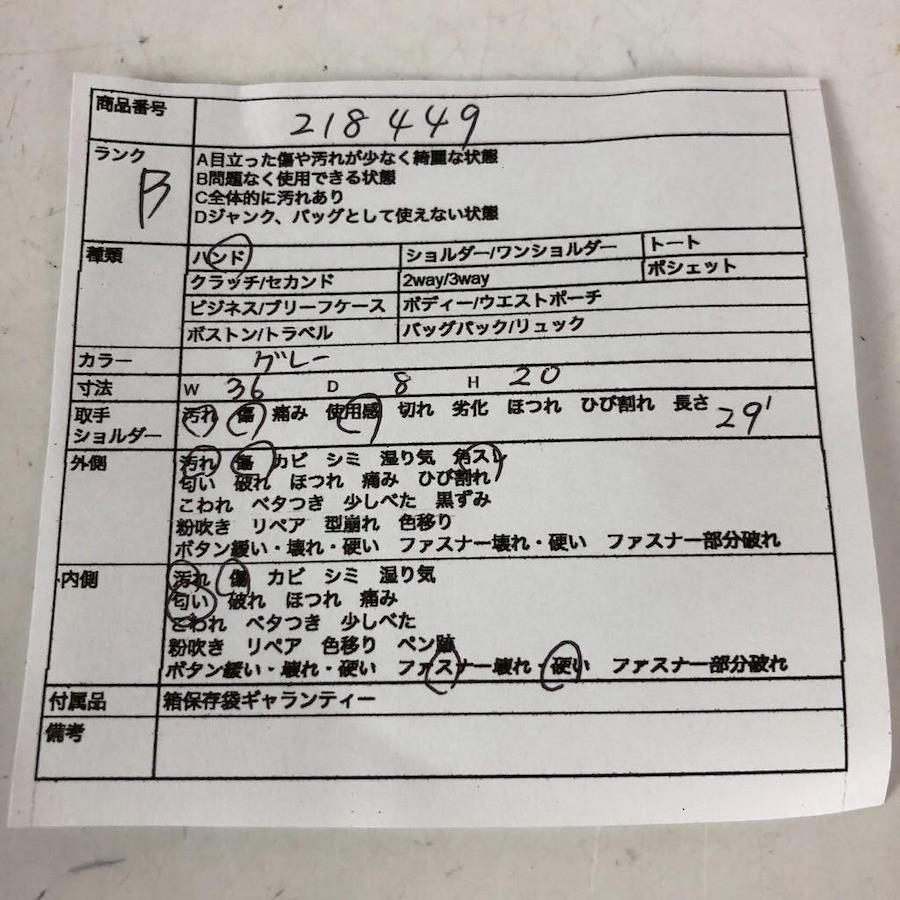 商品番号 218449
ランク B
A目立った傷や汚れが少なく綺麗な状態
B問題なく使用できる状態
C全体的に汚れあり
Dジャンク、バッグとして使えない状態
種類 ハンド ショルダー/ワンショルダー トート
クラッチ/セカンド 2way/3way ポシェット
ビジネス/ブリーフケース ボディー/ウエストポーチ
ボストン/トラベル バッグパック/リュック
カラー グレー
寸法 W 36 D 8 H 20
取手 汚れ 傷 痛み 使用感 切れ 劣化 ほつれ ひび割れ 長さ 29'
ショルダー
外側 汚れ 傷 カビ シミ 湿り気 角スレ
匂い 破れ ほつれ 痛み ひび割れ
こわれ ベタつき 少しべた 黒ずみ
粉吹き リペア 型崩れ 色移り
ボタン緩い・壊れ・硬い ファスナー壊れ・硬い ファスナー部分破れ
内側 汚れ 傷 カビ シミ 湿り気
匂い 破れ ほつれ 痛み
こわれ ベタつき 少しべた
粉吹き リペア 色移り ペン跡
ボタン緩い・壊れ・硬い ファスナー壊れ・硬い ファスナー部分破れ
付属品 箱保存袋ギャランティー
備考